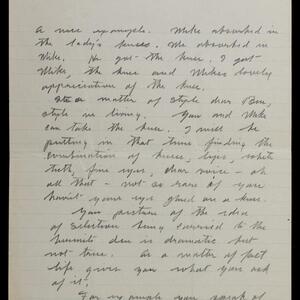 a nice example. Mike absorbed in
the lady's knees. Me absorbed in
Mike. He got the knee. I got
Mike the knee and Mikes lovely
appreciation of the knee.
a matter of style dear Ben,
style in living. You and Mike
can take the knee. I will be
putting in that time finding the
combination of knees, legs, white
teeth, fine eyes, dear voice - oh
all that - not so rare if you
haven't your eyes glued on a knee.
Your picture of the idea
of selection being carried to the
hermits den is dramatic but
not true. As a matter of fact
life gives you what you ask
of it.
For example you speak of